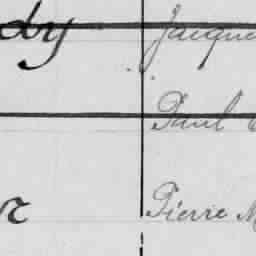 dy Jacque
Paul
r Pierre M